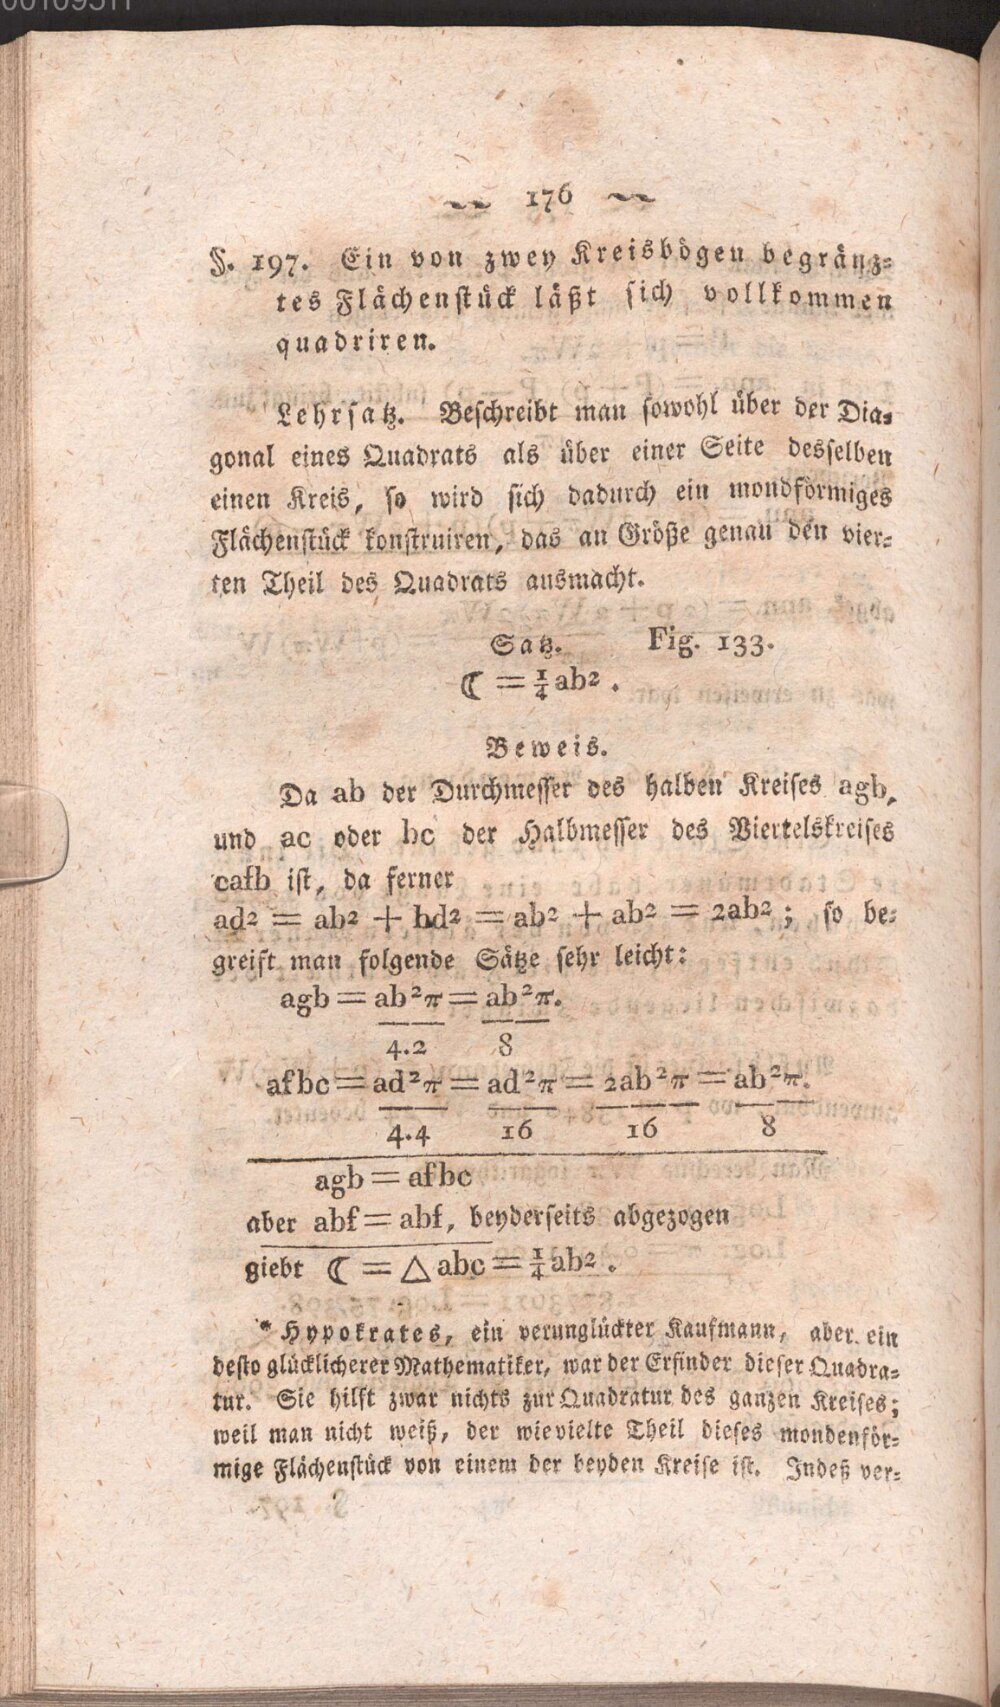 176
§. 197. Ein von zwey Kreisbögen begränz-
tes Flächenstück läßt sich vollkommen
quadriren.
Lehrsatz. Beschreibt man sowohl über der Dia-
gonal eines Quadrats als über einer Seite desselben
einen Kreis, so wird sich dadurch ein mondförmiges
Flächenstück konstruiren, das an Größe genau den vier-
ten Theil des Quadrats ausmacht.
Satz. Fig. 133.
☾ = ¼ab².
Beweis.
Da ab der Durchmesser des halben Kreises agb,
und ac oder bc der Halbmesser des Viertelskreises
cafb ist, da ferner
ad² = ab² + bd² = ab² + ab² = 2ab²; so be-
greift man folgende Sätze sehr leicht:
agb = ab²π = ab²π.
4.2 8
afbc = ad²π = ad²π = 2ab²π = ab²π.
4.4 16 16 8
agb = afbc
aber abf = abf, beyderseits abgezogen
giebt ☾ = △ abc = ¼ab².
* Hypokrates, ein verunglückter Kaufmann, aber ein
desto glücklicherer Mathematiker, war der Erfinder dieser Quadra-
tur. Sie hilft zwar nichts zur Quadratur des ganzen Kreises;
weil man nicht weiß, der wievielte Theil dieses mondenför-
mige Flächenstück von einem der beyden Kreise ist. Indeß ver-